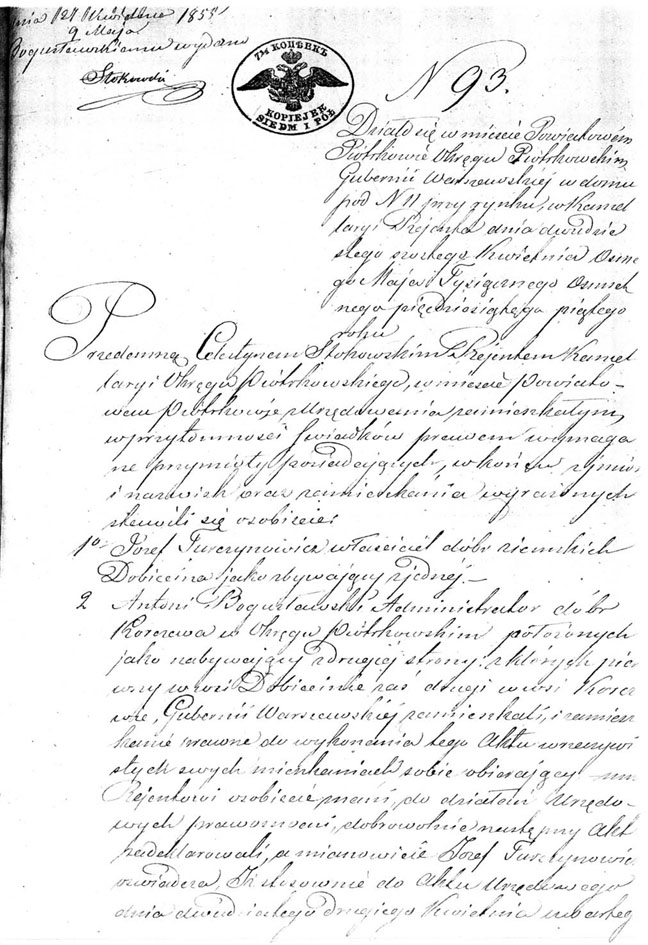 dnia 12/ Kwietnia 1855
9 Maja
Bogusławskiemu wydano
Stokowski
7½ КОПѢЕКЪ
KOPIEJEK
SIEDM I PÓŁ
N 93.
Działo się w mieście Powiatowém
Piotrkowie Okręgu Piotrkowskim
Gubernii Warszawskiéj w domu
pod N 11 przy rynku, w Kancel
laryi Rejenta dnia dwudzie
stego szóstego Kwietnia Osme
go Maja Tysiącznego Osmset
nego pięćdziesiątego piątego
roku
Przedemną Celestynem Stokowskim Rejentem Kancel
laryi Okręgu Piotrkowskiego, w mieście Powiato-
wem Piotrkowie Urzędowania zamieszkałym,
w przytomności świadków prawem wymaga
ne przymioty posiadających, w końcu z imion
i nazwisk oraz zamieszkania wyrażonych
stawili się osobiście:
1o Józef Turczynowicz właściciel dóbr ziemskich
Dobiecina jako zbywający z jednéj. —
2 Antoni Bogusławski Administrator dóbr
Korczewa w Okręgu Piotrkowskim położonych
jako nabywający z drugiéj strony, z których pier
wszy w wsi Dobiecinie zaś drugi w wsi Korcz
wie, Gubernii Warszawskiéj zamieszkali, i zamiesz
kanie prawne do wykonania tego Aktu w rzeczywi
stych swych mieszkaniach sobie obierający
Rejentowi osobiście znani, do działań Urzędo-
wych prawomocni, dobrowolnie następny Akt
zadeklarowali, a mianowicie Józef Turczynowicz
oświadcza, Iż stosownie do Aktu Urzędowego
dnia dwudziestego drugiego Kwietnia czwarteg